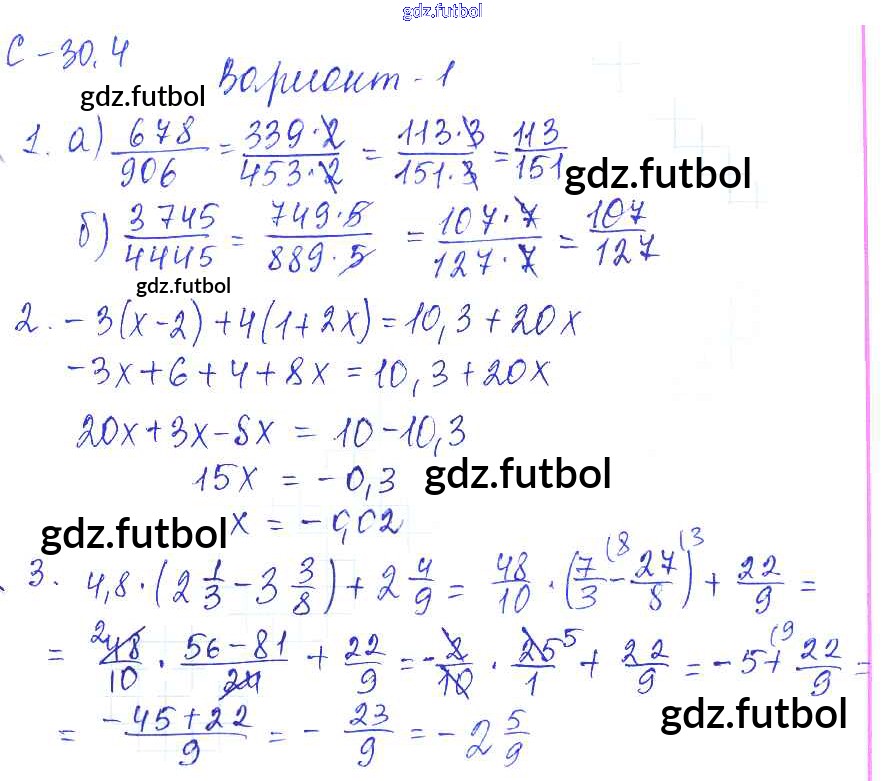 gdz.futbol
С-30.4
Вариант-1
gdz.futbol
1. а) 678/906 = 339·2/453·2 = 113·3/151·3 = 113/151
gdz.futbol
б) 3745/4445 = 749·5/889·5 = 107·7/127·7 = 107/127
gdz.futbol
2. -3(x-2)+4(1+2x)=10,3+20x
-3x+6+4+8x=10,3+20x
20x+3x-8x = 10-10,3
15x = -0,3
gdz.futbol
gdz.futbol
x = -0,02
3. 4,8·(2 1/3 - 3 3/8) + 2 4/9 = 48/10 · (7/3 (8 - 27/8 (3) + 22/9 =
= 2 48/10 · 56-81/24 + 22/9 = - 2/10 · 25 5/1 + 22/9 = -5 (9 + 22/9 =
gdz.futbol
= -45+22/9 = - 23/9 = -2 5/9